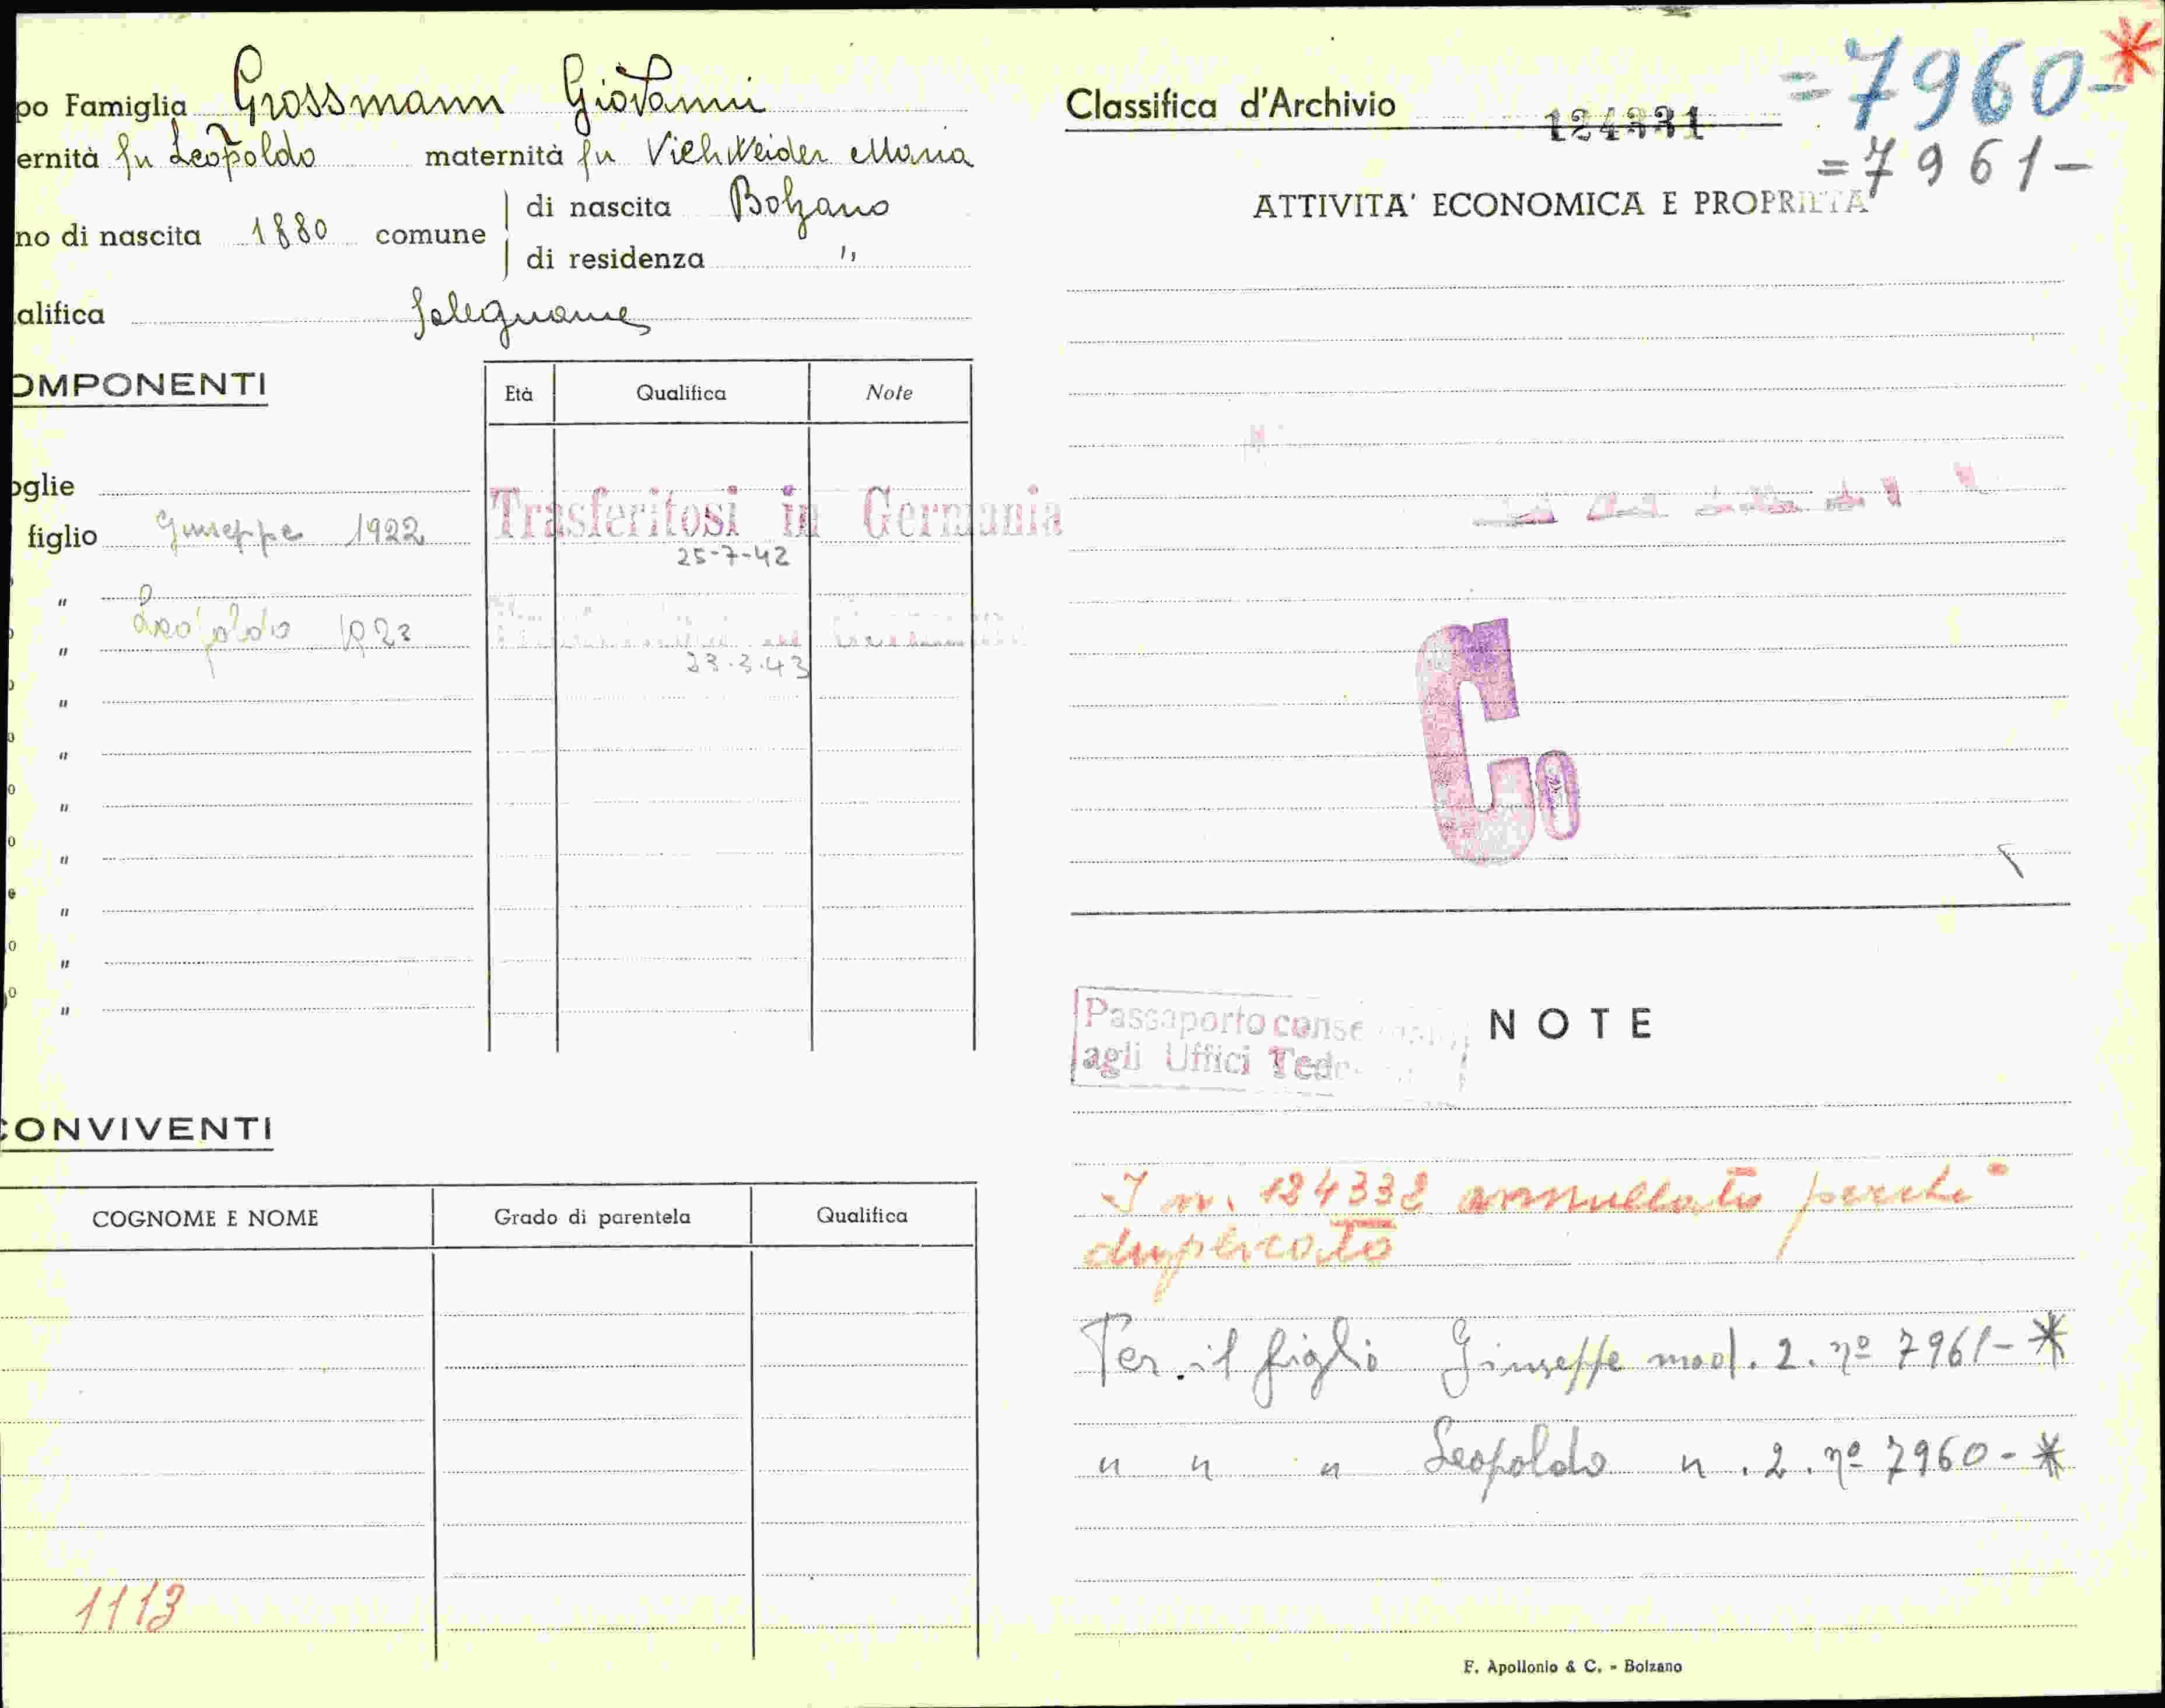 po Famiglia Grossmann Giovanni
ernità fu Leopoldo maternità fu Viehweider Maria
no di nascita 1880 comune di nascita Bolzano
di residenza "
alifica falegname
OMPONENTI
Età Qualifica Note
oglie
figlio Giuseppe 1922 Trasferitosi in Germania
25-7-42
"
" Leopoldo 1923
23.3.43
"
"
"
"
"
"
"
CONVIVENTI
COGNOME E NOME Grado di parentela Qualifica
1113
Classifica d'Archivio 124331 =7960-*
=7961-
ATTIVITA' ECONOMICA E PROPRIETA'
Co
NOTE
Passaporto
agli Uffici
I n. 124332 annullato perchè
duplicato
Per il figlio Giuseppe mod. 2. nº 7961-*
" " " Leopoldo " . 2. nº 7960-*
F. Apollonio & C. - Bolzano